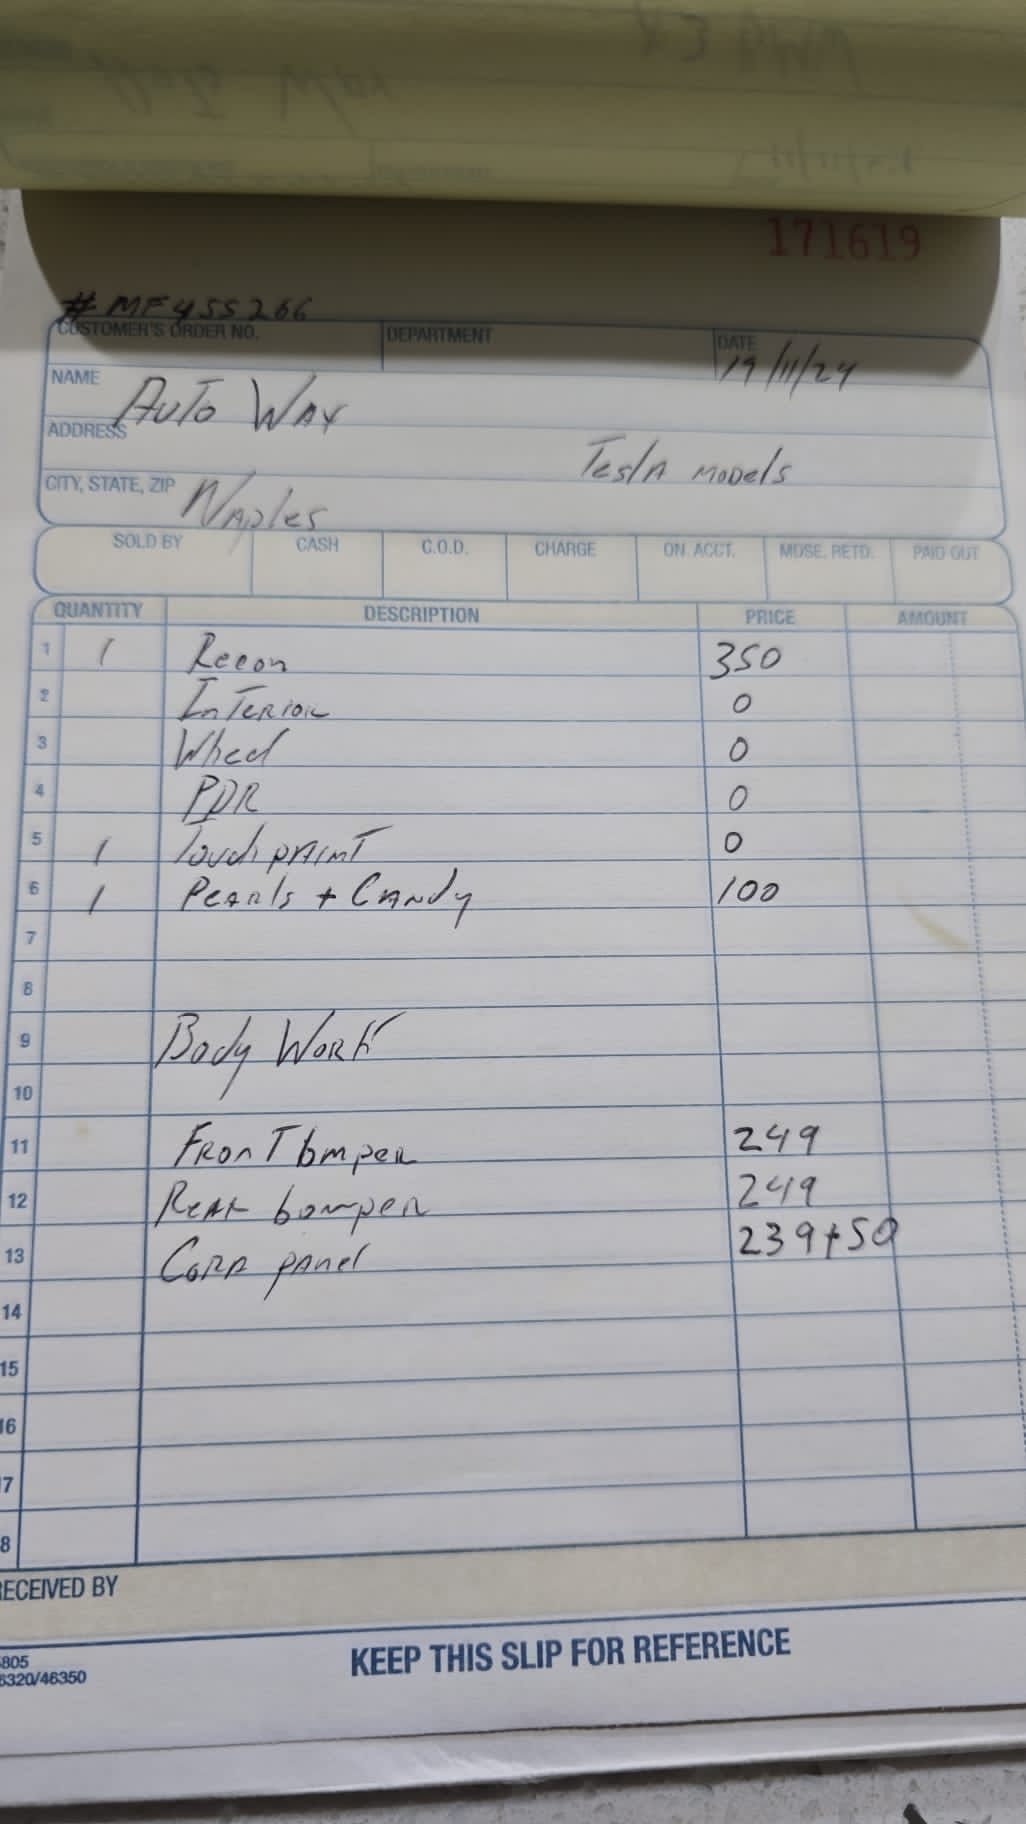 171619
#MF455266
CUSTOMER'S ORDER NO. DEPARTMENT DATE 19/11/24
NAME Auto Way
ADDRESS Tesla models
CITY, STATE, ZIP Naples
SOLD BY CASH C.O.D. CHARGE ON. ACCT. MDSE. RETD. PAID OUT
QUANTITY DESCRIPTION PRICE AMOUNT
1 1 Recon 350
2 Interior 0
3 Wheel 0
4 PDR 0
5 1 Touch paint 0
6 1 Pearls + Candy 100
7
8
9 Body Work
10
11 Front bmper 249
12 Rear bomper 249
13 panel 239+50
14
15
16
7
8
RECEIVED BY
805
6320/46350
KEEP THIS SLIP FOR REFERENCE